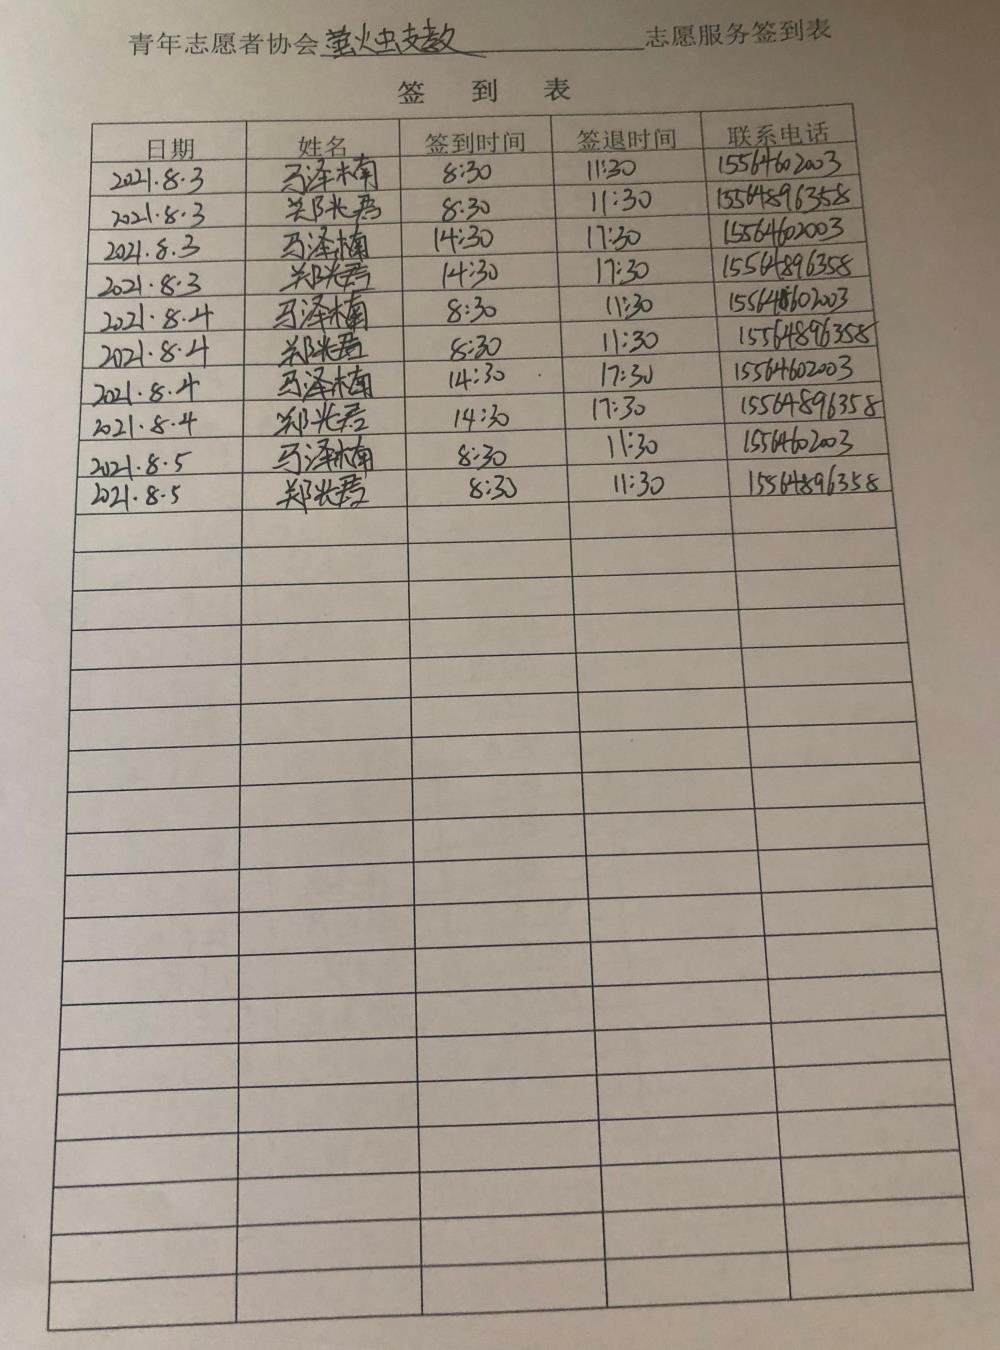 青年志愿者协会萤火虫支教志愿服务签到表
签 到 表
日期 姓名 签到时间 签退时间 联系电话
2021.8.3 马泽楠 8:30 11:30 15564602003
2021.8.3 郑兆君 8:30 11:30 15564896358
2021.8.3 马泽楠 14:30 17:30 15564602003
2021.8.3 郑兆君 14:30 17:30 15564896358
2021.8.4 马泽楠 8:30 11:30 15564602003
2021.8.4 郑兆君 8:30 11:30 15564896358
2021.8.4 马泽楠 14:30 17:30 15564602003
2021.8.4 郑兆君 14:30 17:30 15564896358
2021.8.5 马泽楠 8:30 11:30 1556402003
2021.8.5 郑兆君 8:30 11:30 15564896358